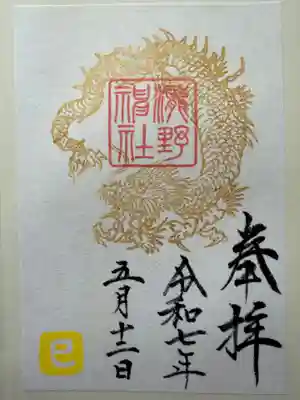 奉拝
野
神社
令和七年
五月十二日
巳